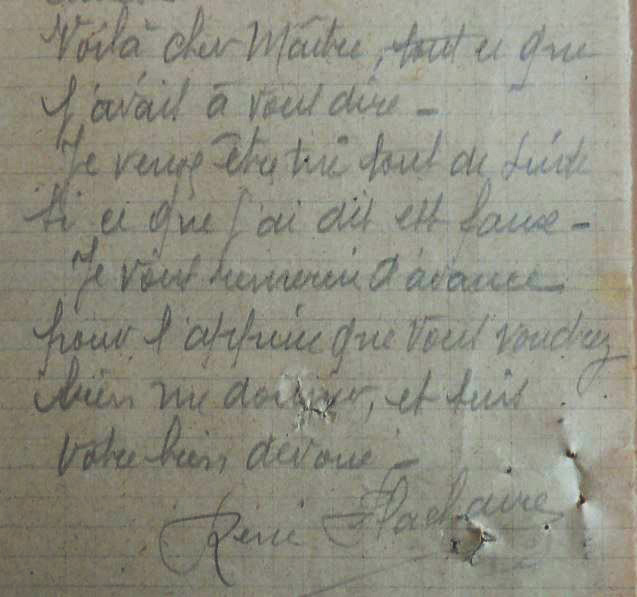 Voilà cher Maître, tout ce que
j'avais à vous dire -
Je veux être tué tout de suite
si ce que j'ai dit est faux -
Je vous remercie d'avance
pour l'appui que vous voudrez
bien me donner, et suis
votre bien dévoué -
René Flachaire